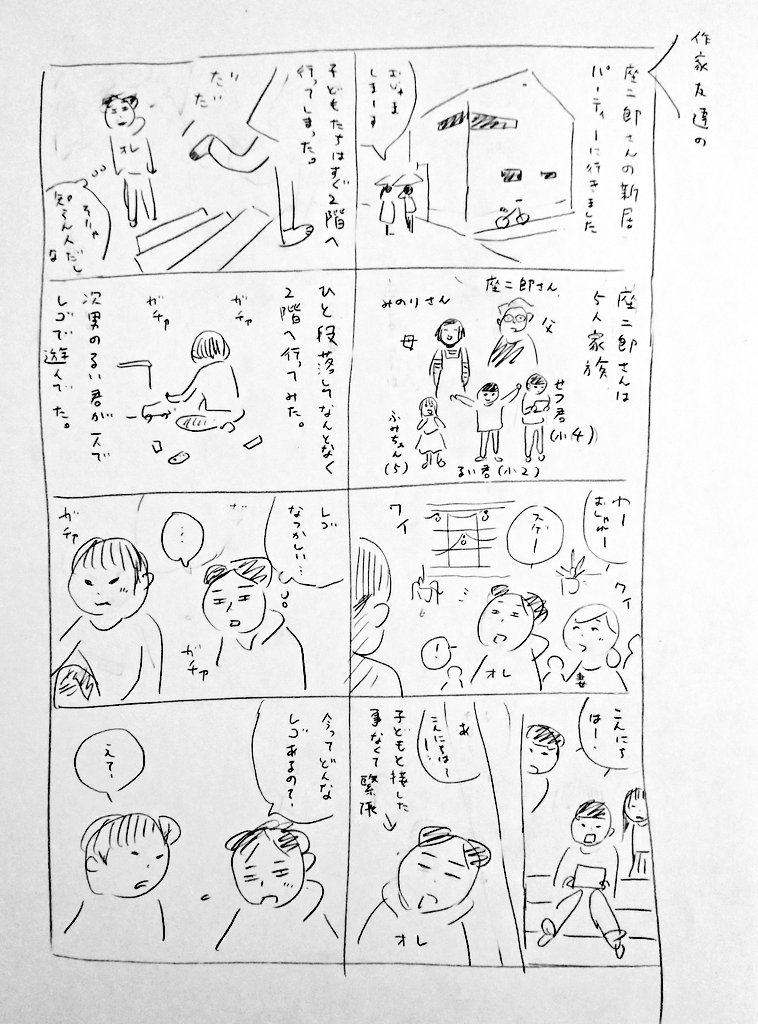 作家友達の
座二郎さんの新居
パーティーに行きました
おじゃま
しまーす
座二郎さんは
5人家族
座二郎さん
父
みのりさん
母
せつ君
(小4)
るい君(小2)
ふみちゃん
(5)
わー
おしゃれー
ワイ
スゲー
ワイ
オレ
妻
こんにち
はー!
あ
こんにちは〜
子どもと接した
事なくて緊張
オレ
子どもたちはすぐ2階へ
行ってしまった。
だだ
オレ
そりゃ
知らん人だし
な
ひと段落してなんとなく
2階へ行ってみた。
ガチャ
ガチャ
次男のるい君が一人で
レゴで遊んでた。
レゴ
なつかしい…
…
ガチャ
ガチャ
今ってどんな
レゴあるの?
えて?